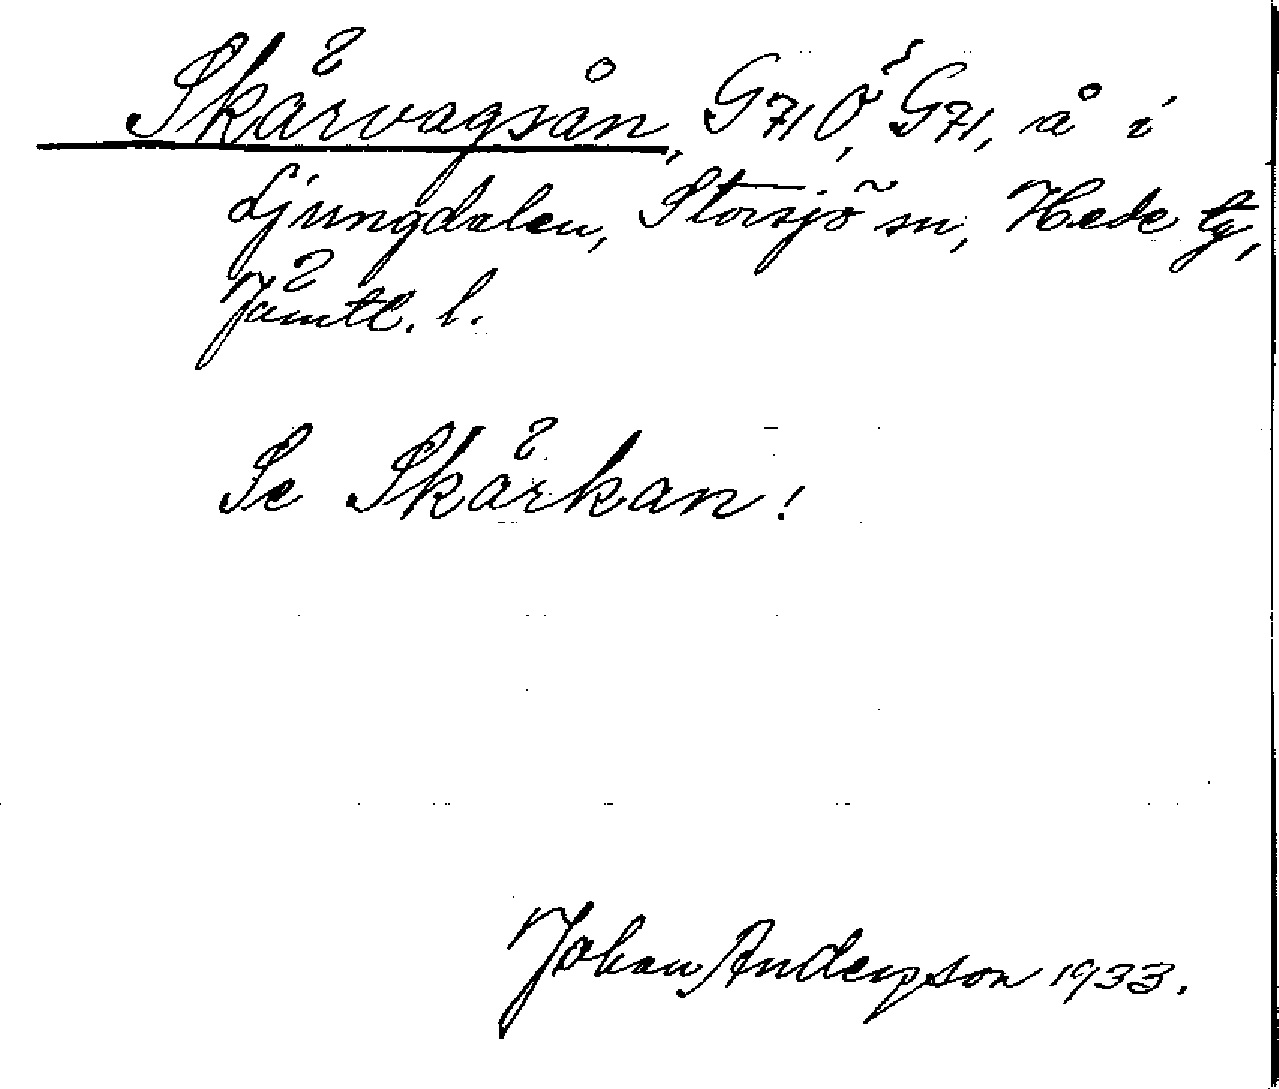 Skärvagsån, G71Ö, G71, å i
Ljungdalen, Storsjö sn, Hede tg,
Jämtl. l.
Se Skärkan!
Johan Anderzson 1933.